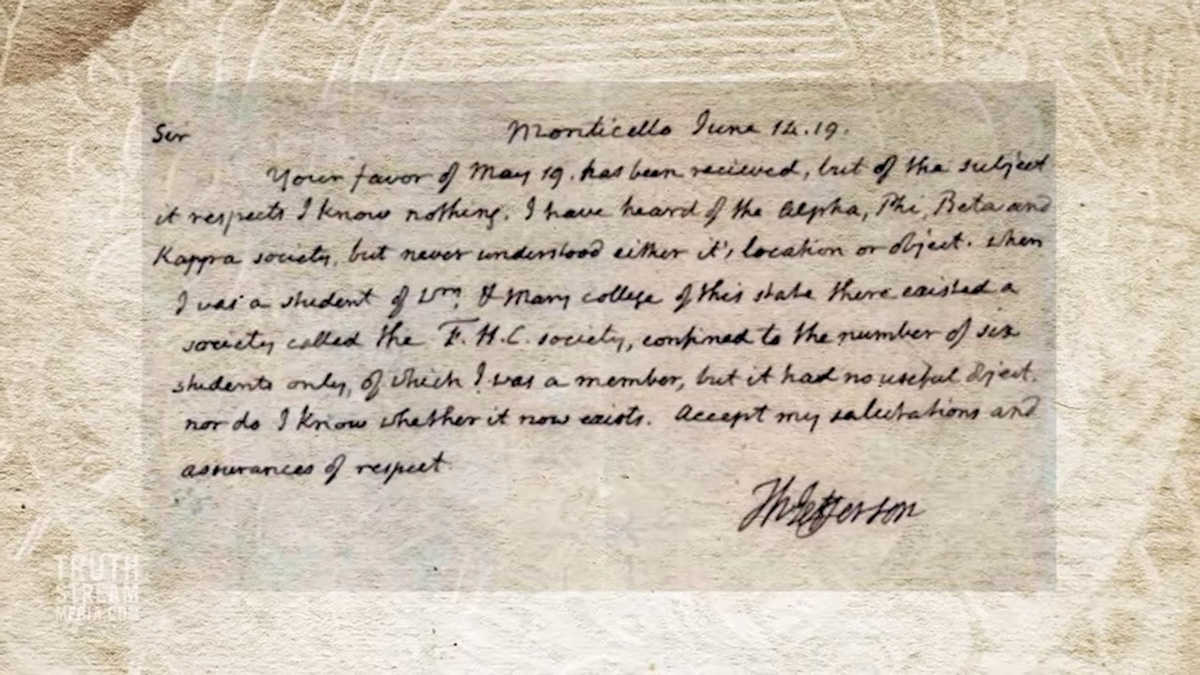 Sir Monticello June 14. 19.
Your favor of May 19. has been recieved, but of the subject
it respects I know nothing. I have heard of the Alpha, Phi, Beta and
Kappa society, but never understood either it's location or object. when
I was a student of Wm. & Mary college of this state there existed a
society called the F. H. C. society, confined to the number of six
students only, of which I was a member, but it had no useful object.
nor do I know whether it now exists. Accept my salutations and
assurances of respect
Th Jefferson
TRUTH
STREAM
MEDIA.COM